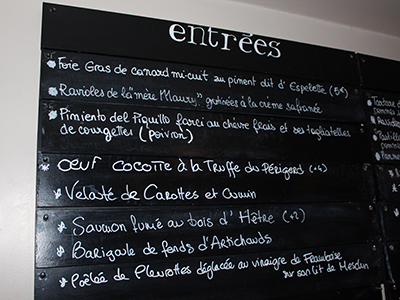 entrées
* Foie Gras de canard mi-cuit au piment dit d'Espelette (5€)
* Ravioles de la "mère Maury", gratinées à la crème safranée
* Pimiento del Piquillo farci au chèvre frais et ses tagliatelles
de courgettes (poivron)
* OEUF COCOTTE à la Truffe du Périgord (+4)
* Velouté de Carottes et Cumin
* Saumon fumé au bois d'Hêtre (+2)
* Barigoule de fonds d'Artichauds
* Poêlée de Pleurottes déglacée au vinaigre de Framboise
sur son lit de Mesclun